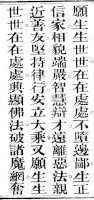 願生生世世在在處處不墮邊鄙生正
信家相貌端嚴智慧辯才遠離惡法親
近善友堅持律行安立大乘又願生生
世世在在處處興顯佛法破諸魔網奪